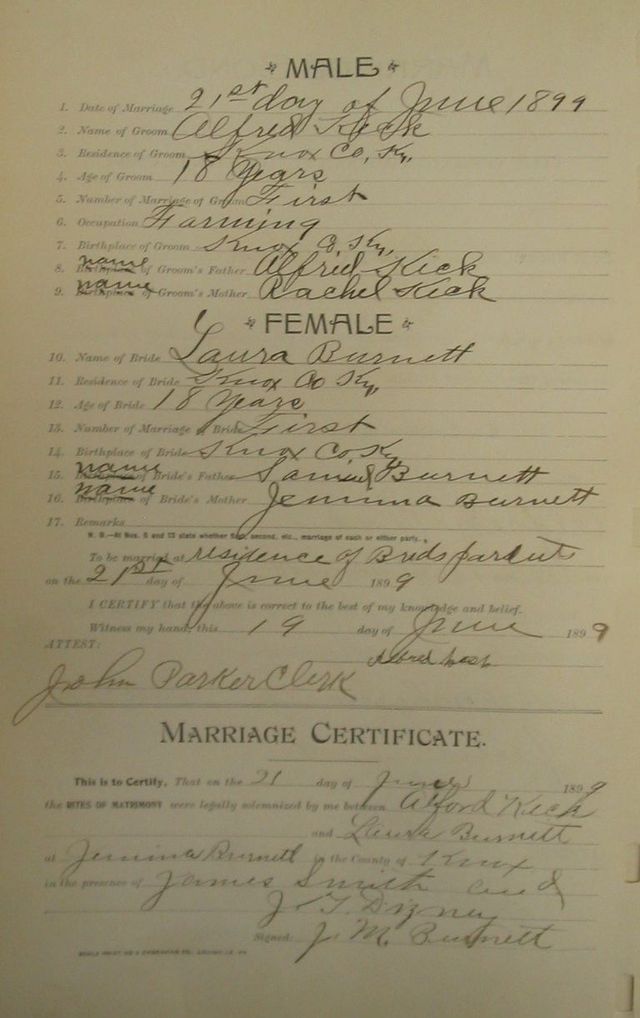 MALE
1. Date of Marriage 21st day of June 1899
2. Name of Groom Alfred Keck
3. Residence of Groom Knox Co, Ky,
4. Age of Groom 18 Years
5. Number of Marriage of Groom First
6. Occupation Farming
7. Birthplace of Groom Knox Co Ky,
8. Birthplace name of Groom's Father Alfred Keck
9. Birthplace name of Groom's Mother Rachel Keck
FEMALE
10. Name of Bride Laura Burnett
11. Residence of Bride Knox Co Ky,
12. Age of Bride 18 Years
13. Number of Marriage of Bride First
14. Birthplace of Bride Knox Co Ky
15. Birthplace name of Bride's Father Burnett
16. Birthplace name of Bride's Mother Jemima Burnett
17. Remarks
N. B.—At Nos. 5 and 13 state whether first, second, etc., marriage of each or either party.
To be married at residence of Brids parents
on the 21st day of June 1899
I CERTIFY that the above is correct to the best of my knowledge and belief.
Witness my hand, this 19 day of June 1899
ATTEST:
Alfred
John Parker Clerk
MARRIAGE CERTIFICATE.
This is to Certify, That on the 21 day of June 1899
the RITES OF MATRIMONY were legally solemnized by me between Alford Keck
and Laura Burnett
at Jemima Burnett in the County of Knox
in the presence of James Smith and
J. T. Dizney
Signed: J. M. Burnett